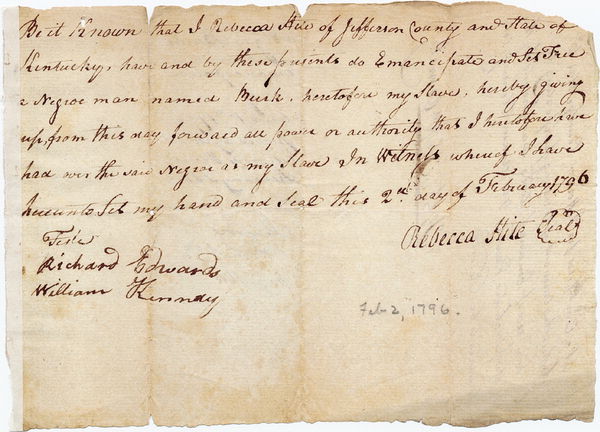 Be it Known that I Rebecca Hite of Jefferson County and State of
Kentucky, have and by these presents do Emancipate and Set Free
a Negroe man named Buck, heretofore my Slave, hereby giving
up, from this day forward all power or authority that I heretofore have
had over the said Negroe as my Slave In Witness whereof I have
hereunto Set my hand and Seal this 2nd. day of February 1796
Rebecca Hite Seal
Teste
Richard Edwards
William Kennedy
Feb 2, 1796.